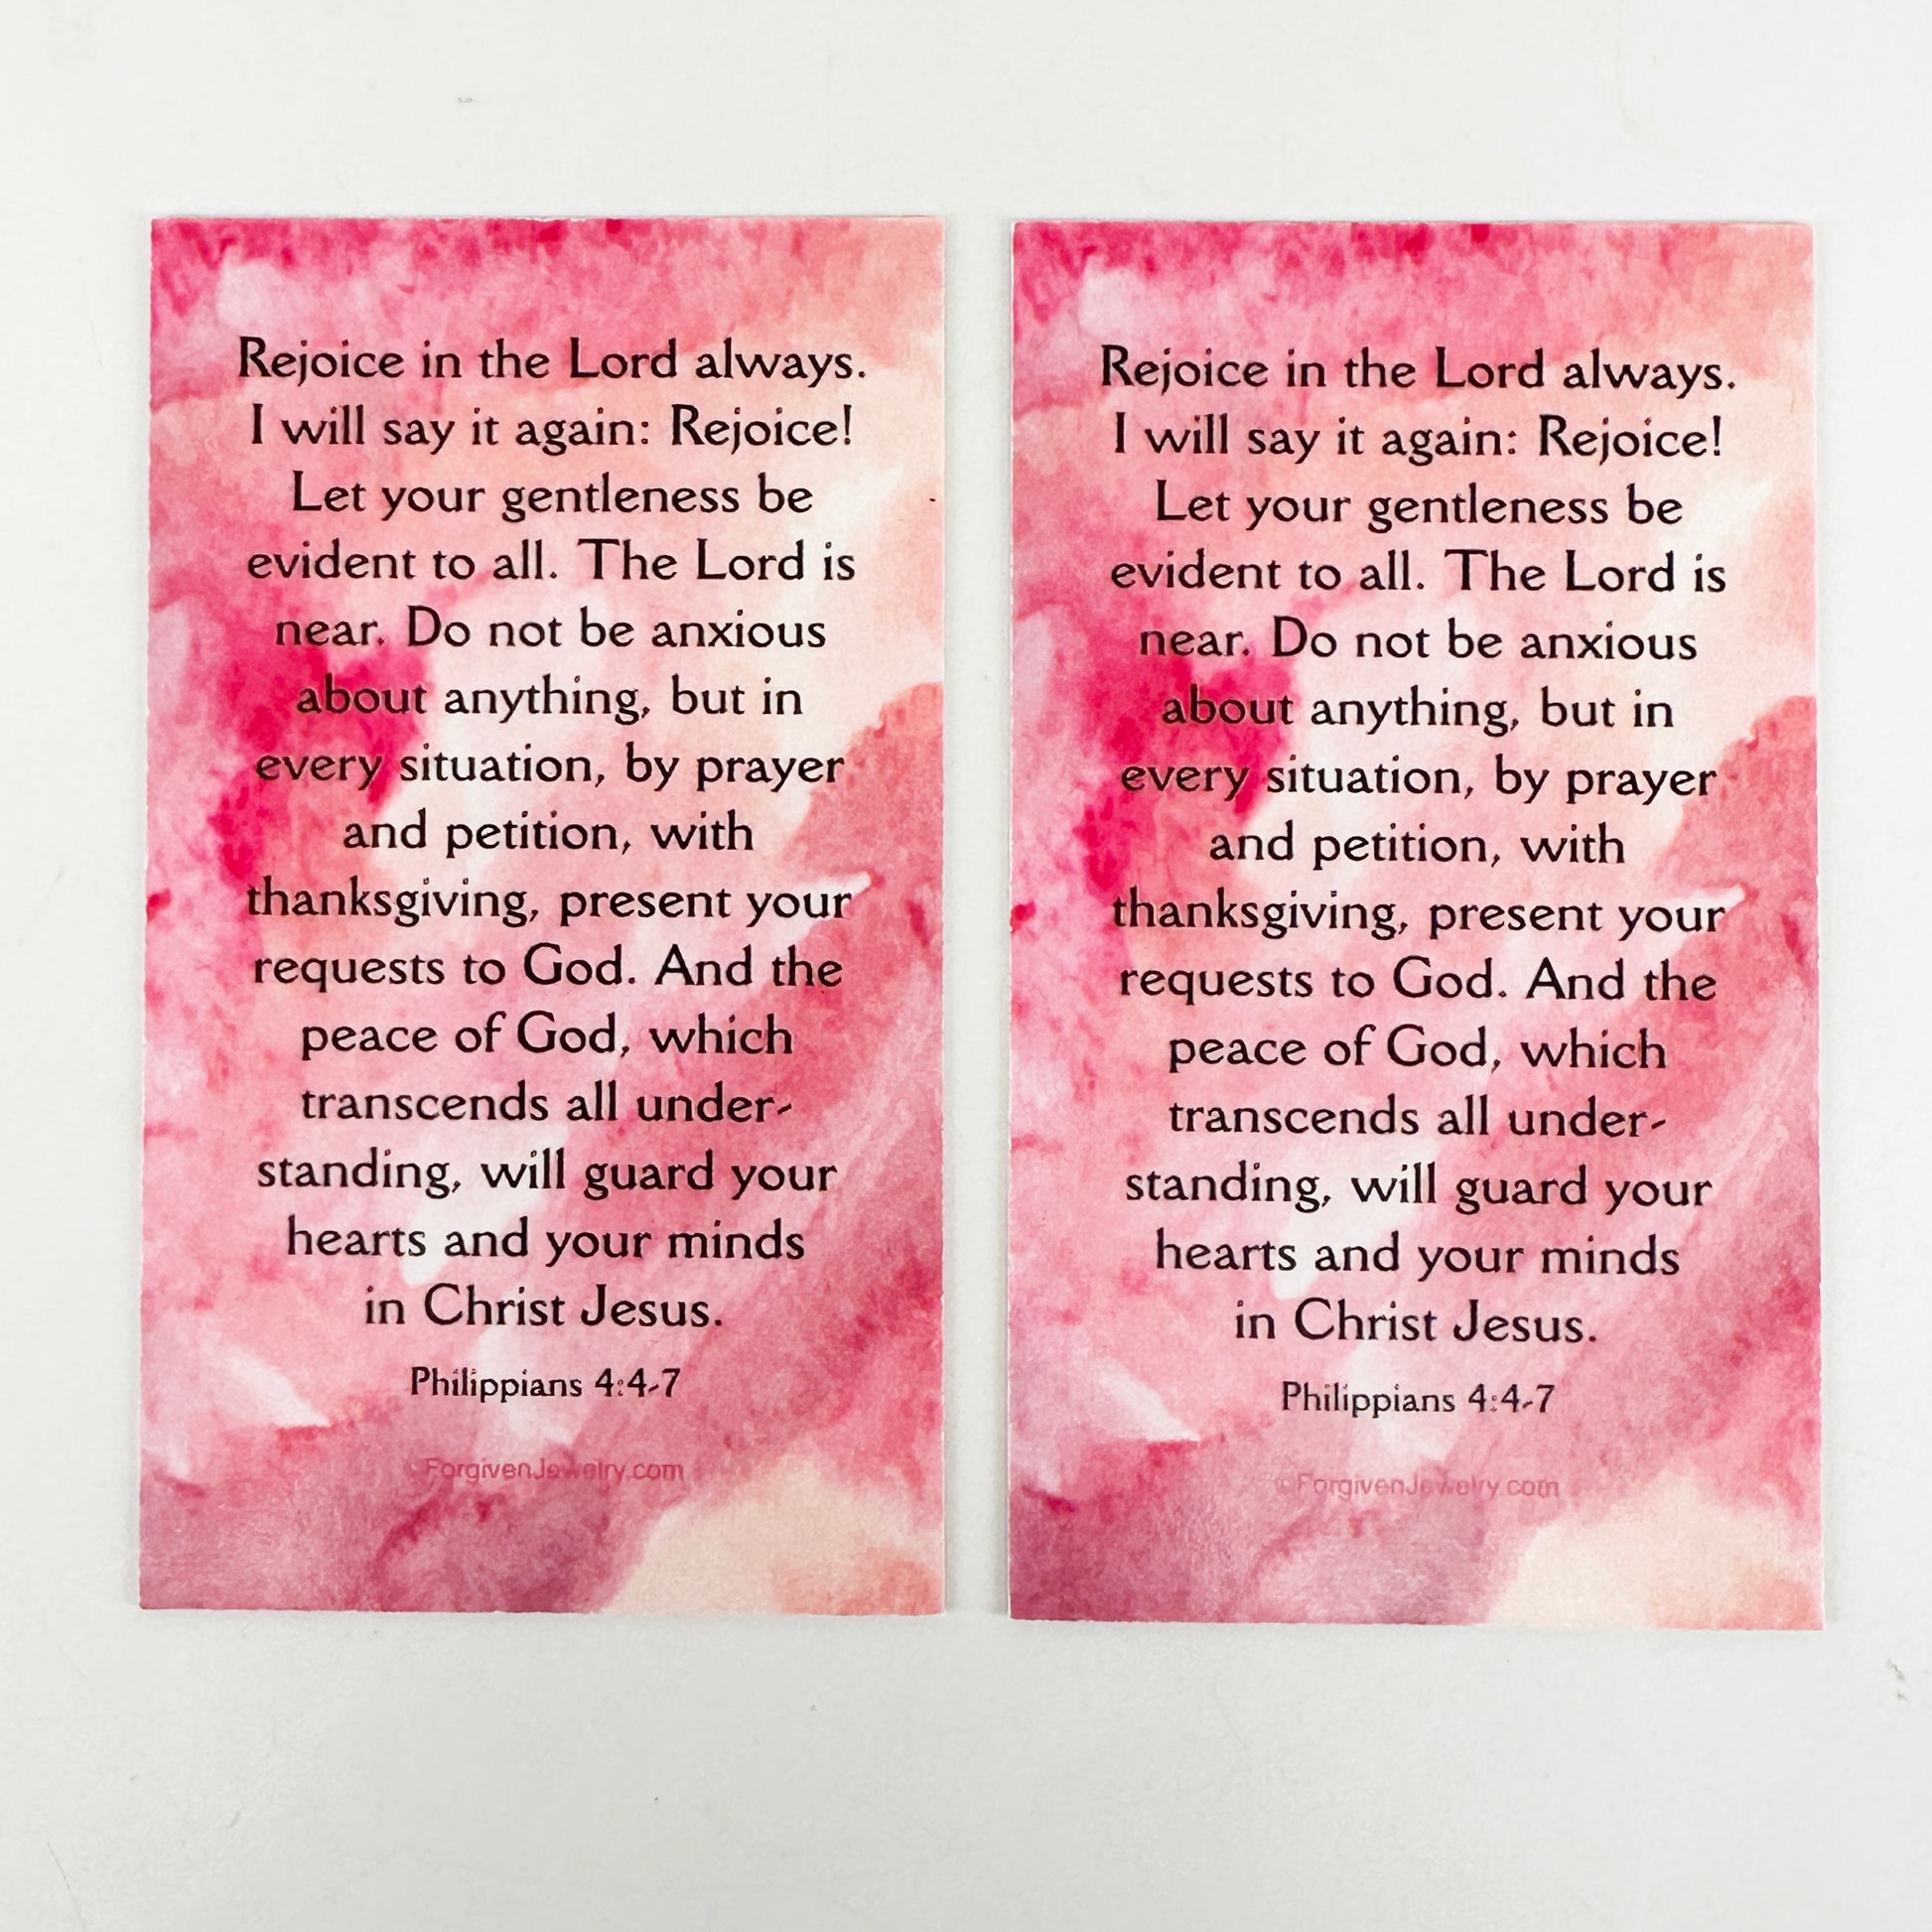 Rejoice in the Lord always.
I will say it again: Rejoice!
Let your gentleness be
evident to all. The Lord is
near. Do not be anxious
about anything, but in
every situation, by prayer
and petition, with
thanksgiving, present your
requests to God. And the
peace of God, which
transcends all under-
standing, will guard your
hearts and your minds
in Christ Jesus.
Philippians 4:4-7
©ForgivenJewelry.com
Rejoice in the Lord always.
I will say it again: Rejoice!
Let your gentleness be
evident to all. The Lord is
near. Do not be anxious
about anything, but in
every situation, by prayer
and petition, with
thanksgiving, present your
requests to God. And the
peace of God, which
transcends all under-
standing, will guard your
hearts and your minds
in Christ Jesus.
Philippians 4:4-7
©ForgivenJewelry.com